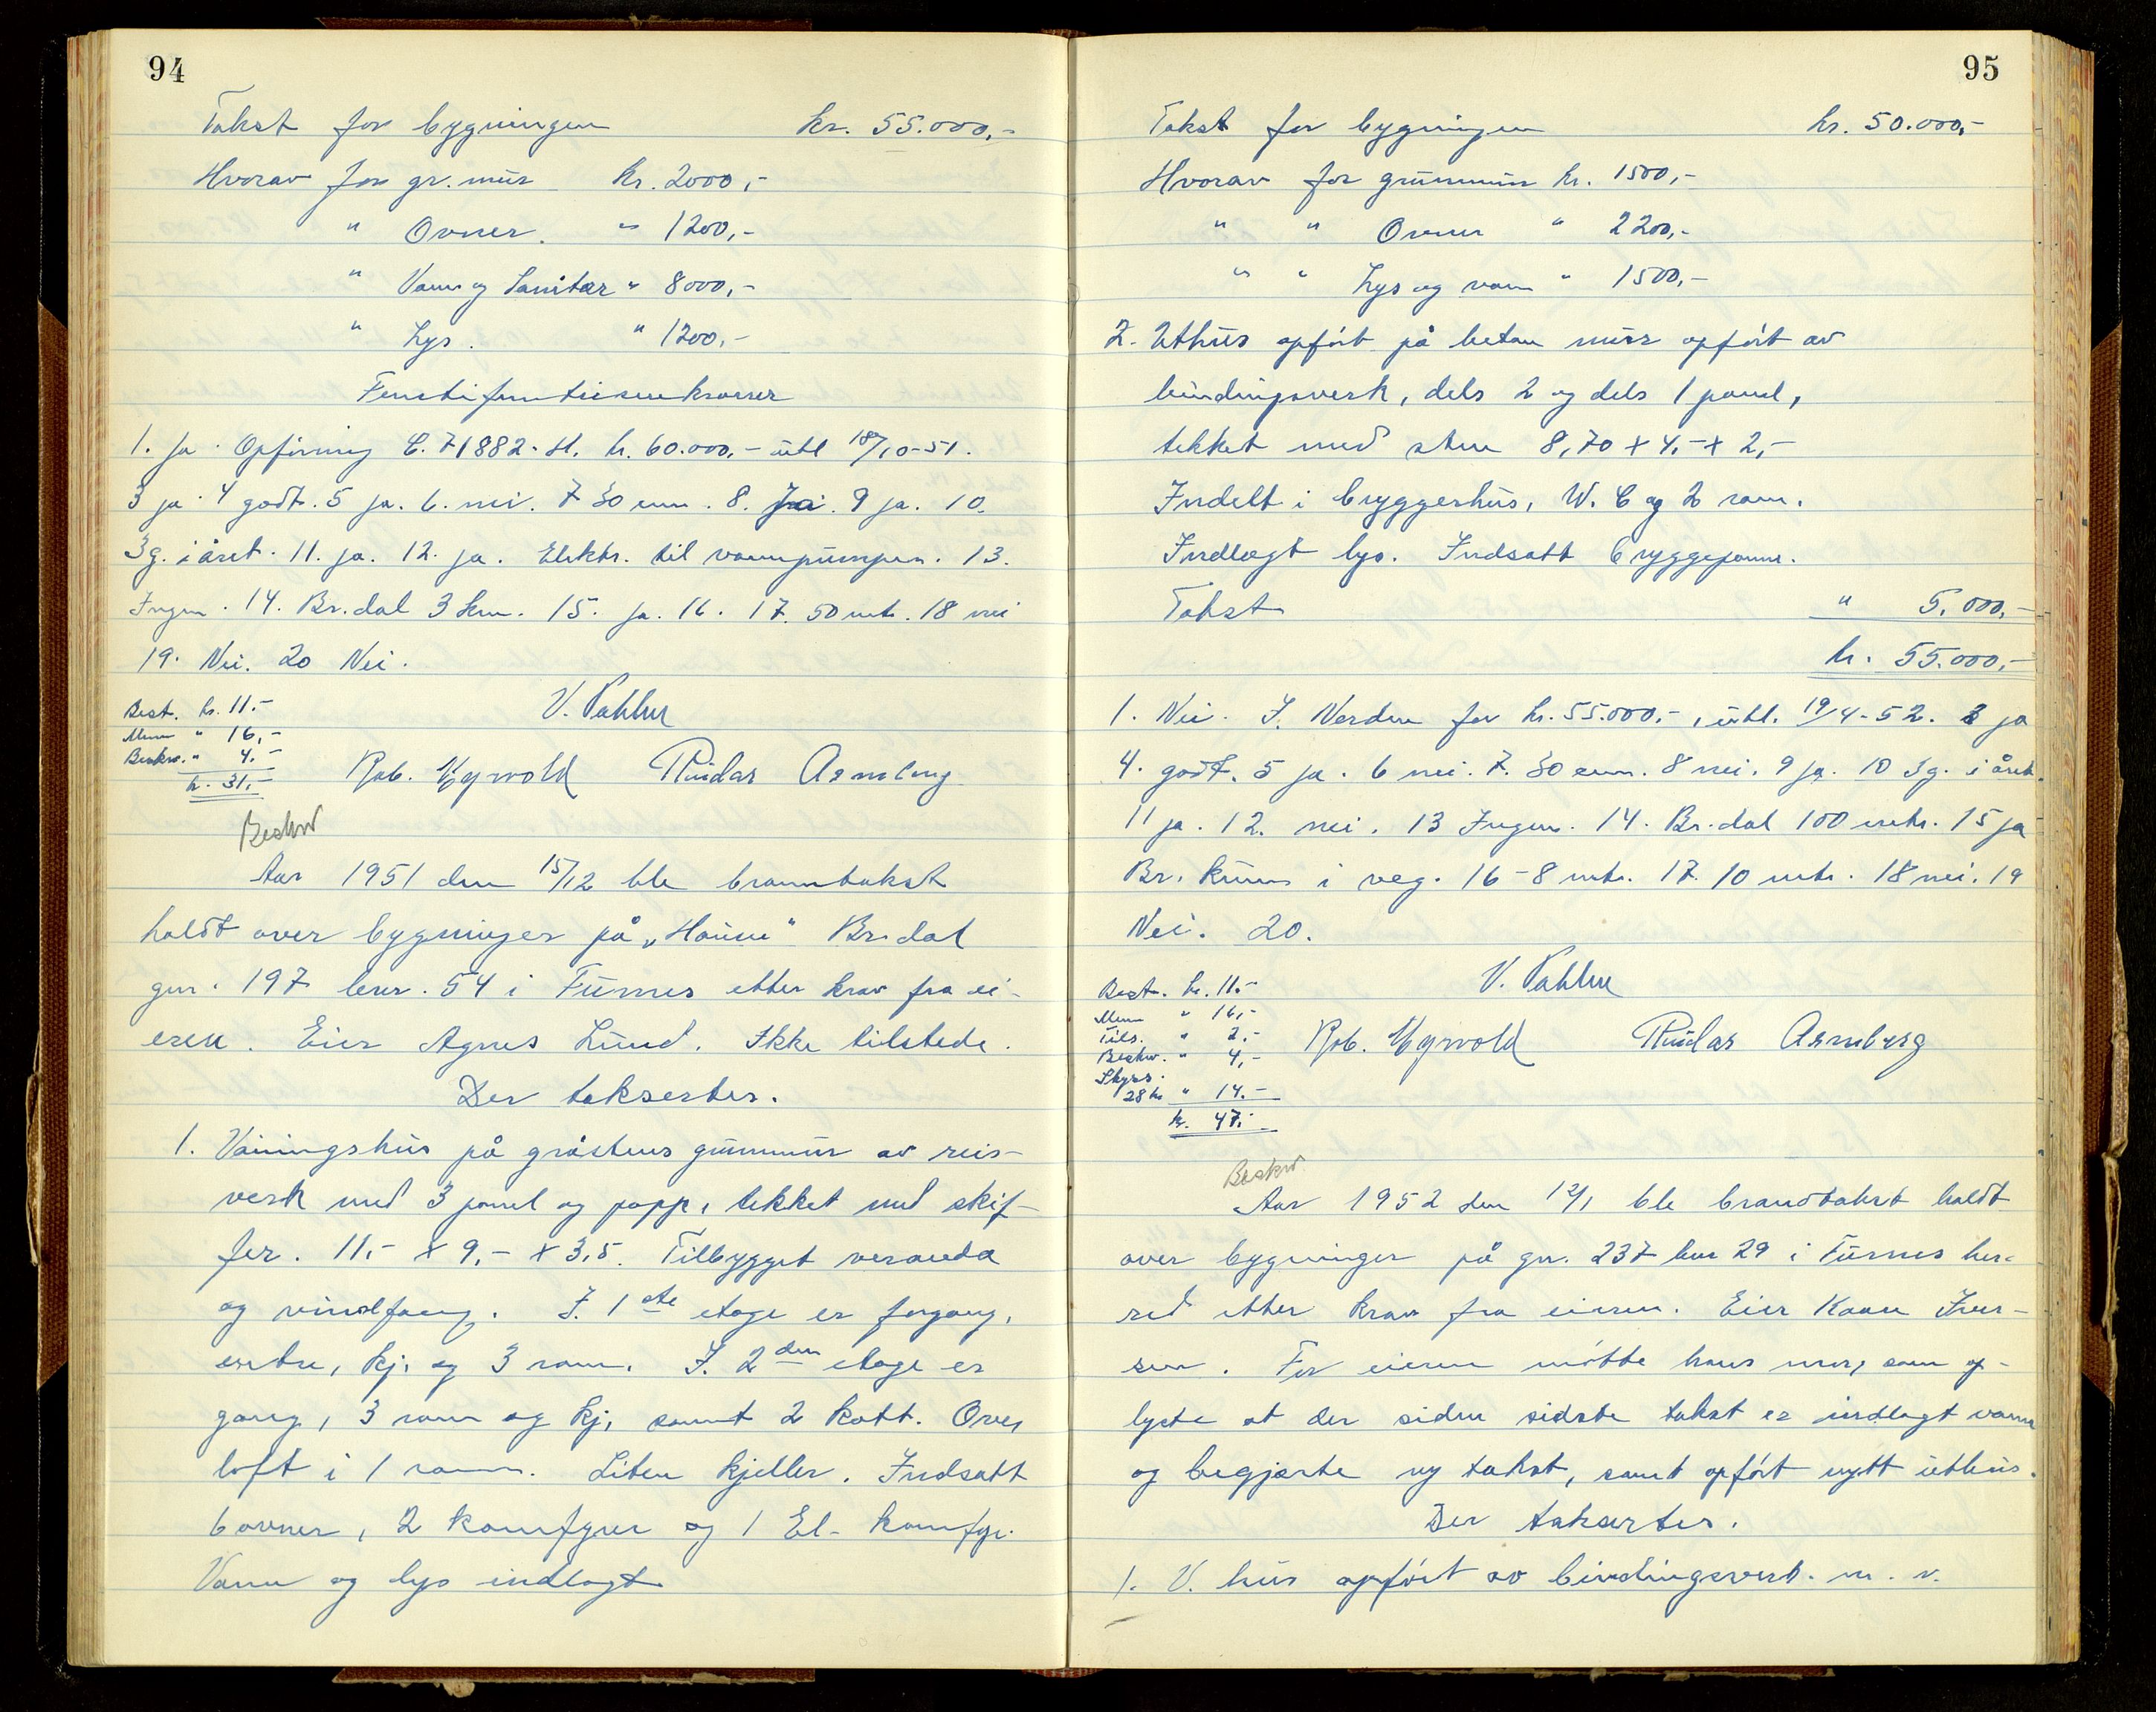 94
Takst for bygningen kr. 55.000,-
Hvorav for gr. mur kr. 2000,-
" Ovner. " 1200,-
" Vann og Sanitær " 8000,-
" Lys. " 1200,-
Femtifemtusenkroner
1. Ja. Opførning C. 71882. st. kr. 60.000,- utl 18/10-51.
3 ja. 4 godt. 5 ja. 6. nei. 7 30 cm. 8. Ja. 9 ja. 10.
3g. i året. 11. ja. 12. ja. Elektr. til vannpumpen. 13.
Ingen. 14. Br.dal 3 km. 15. ja. 16. 17. 50 mtr. 18 nei
19. Nei. 20 Nei.
Best. kr. 11.-
Menn " 16,-
Beskr. " 4.-
kr. 31,-
V. Pahlm
Rob. Myrvold Reidar Armberg
Beskr
Aar 1951 den 15/12 ble branntakst
holdt over bygninger på "Haune" Br.dal
gnr. 197 bnr. 54 i Furnes etter krav fra ei-
eren. Eier Agnes Lund. Ikke tilstede.
Der takserter.
1. Våningshus på gråstens grunnmur av reis-
verk med 3 panel og papp, tekket med skif-
fer. 11,- x 9,- x 3,5. Tilbygget veranda
og vindfang. I. 1ste etage er forgang,
entre, kj. og 3 rom. I. 2den etage er
gang, 3 rom og kj. samt 2 kott. Over
loft i 1 rom. Liten kjeller. Indsatt
6 ovner, 2 komfyrer og 1 El- komfyr.
Vann og lys indlagt
95
Takst for bygningen kr. 50.000,-
Hvorav for grunnmur kr. 1500,-
" " Ovner " 2200,-
" " Lys og vann " 1500,-
2. Uthus opført på betong mur opført av
bindingsverk, dels 2 og dels 1 panel,
tekket med sten 8,70 x 4,- x 2,-
Indelt i bryggerhus, W. C og 2 rom.
Indlagt lys. Indsatt bryggepanne.
Takst " 5.000,-
kr. 55.000,-
1. Nei. I. Norden for kr. 55.000,-, utl. 19/4-52. 3 ja
4. godt. 5 ja. 6 nei. 7. 30 cm. 8 nei. 9 ja. 10 3g. i året.
11 ja. 12. nei. 13 Ingen. 14. Br.dal 100 mtr. 15 ja
Br. kum i veg. 16 - 8 mtr. 17. 10 mtr. 18 nei. 19
Nei. 20.
Best. kr. 11.-
Menn " 16,-
Tils. " 2,-
Beskr. " 4,-
Skyss.
28 km " 14.-
kr. 47.-
V. Pahlm
Rob. Myrvold Reidar Armberg
Beskr
Aar 1952 den 12/1 ble brandtakst holdt
over bygninger på gnr. 237 bnr 29 i Furnes her-
red etter krav fra eieren. Eier Kaare Iver-
sen. For eieren møtte hans mor, som op-
lyste at der siden sidste takst er indlagt vann
og begjærte ny takst, samt opført nytt uthus.
Der takserter.
1. V. hus opført av bindingsverk. m. v.